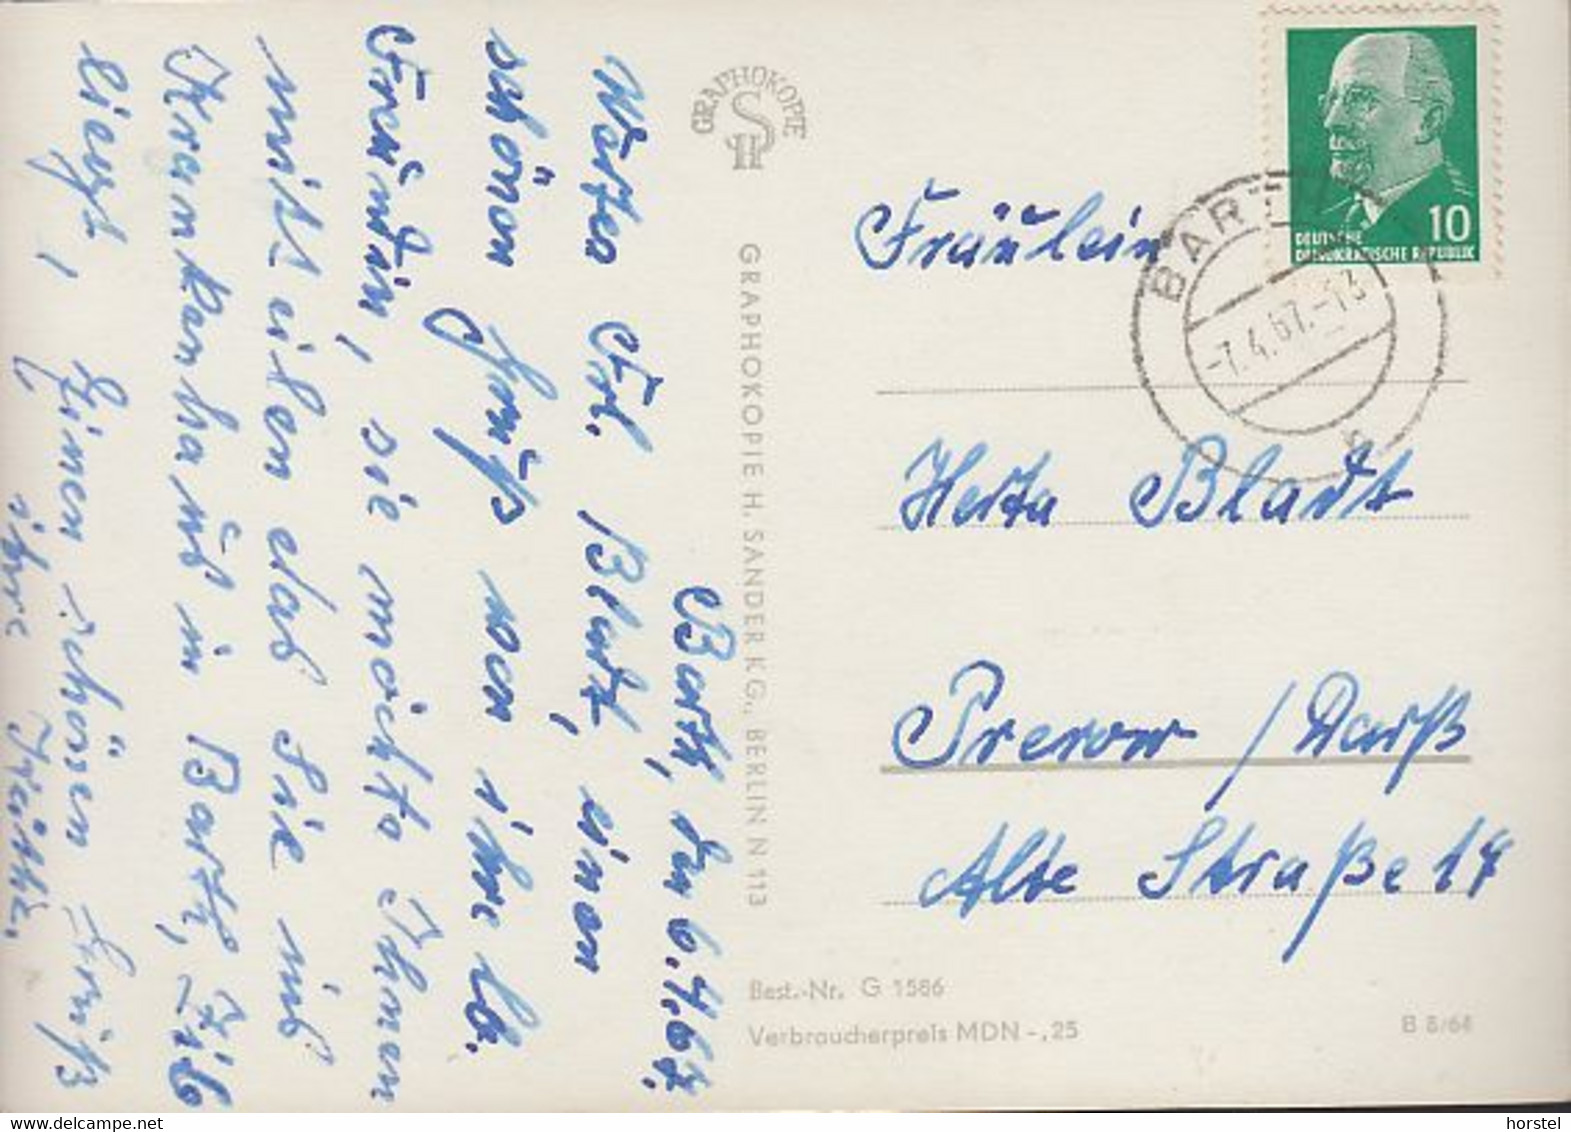 Barth, den 6.4.67.
Wertes Frl. Bladt, einen
schönen Gruß von ihre lb.
Freundin, sie möchte Ihnen
mitteilen das Sie im
Krankenhaus in Barth,
liegt, Einen schönen Gruß
ihre
GRAPHOKOPIE
H
GRAPHOKOPIE H. SANDER KG., BERLIN N 113
DEUTSCHE
DEMOKRATISCHE REPUBLIK
10
BARTH
-7.4.67.-13
Fräulein
Herta Bladt
Prerow / Darß
Alte Straße 17
Best.-Nr. G 1586
Verbraucherpreis MDN -,25
B 8/64
horstel